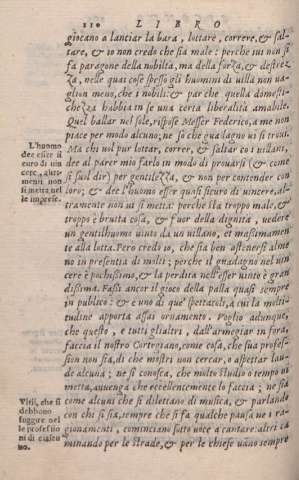 110 LIBRO
giocano a lanciar la bara, lottare, correre, & sal-
tare, & io non credo che sia male: perche iui non si
fa paragone della nobiltà, ma della forza, & destrez
za, nelle quai cose spesso gli huomini di uilla non ua-
glion meno, che i nobili: & par che quella domesti-
chezza habbia in se una certa liberalità amabile.
Quel ballar nel sole, rispose Messer Federico, a me non
piace per modo alcuno; ne so che guadagno ui si troui.
L'huomo
dee esser si
curo di uin
cere, altri-
menti non
si metta nel
le imprese.
Ma chi uol pur lottar, correr, & saltar co i uillani,
dee al parer mio farlo in modo di prouarsi (& come
si suol dir) per gentilezza, & non per contender con
loro; & dee l'huomo esser quasi sicuro di uincere, al-
tramente non ui si metta: perche sta troppo male, &
troppo è brutta cosa, & fuor della dignità, uedere
un gentilhuomo uinto da un uillano, et massimamen
te alla lotta. Però credo io, che sia ben astenersi alme
no in presentia di molti; perche il guadagno nel uin
cere è pochissimo, & la perdita nell'esser uinto è gran
dissima. Fassi ancor il gioco della palla quasi sempre
in publico: & è uno di que' spettacoli, a cui la molti-
tudine apporta assai ornamento. Voglio adunque,
che questo, e tutti gli altri, dall'armegiar in fora,
faccia il nostro Cortegiano, come cosa, che sua profes-
sion non sia, di che mostri non cercar, o aspettar lau-
de alcuna; ne si conosca, che molto studio o tempo ui
metta, auuenga che eccellencemente lo faccia; ne sia
Vitii, che si
debbono
fuggire nel
le professio
ni di ciascu
no.
come alcuni che si dilettano di musica, & parlando
con chi si sia, sempre che si fa qualche pausa ne i ra-
gionamenti, cominciano sotto uoce a cantare: altri ca
minando per le strade, & per le chiese uano sempre